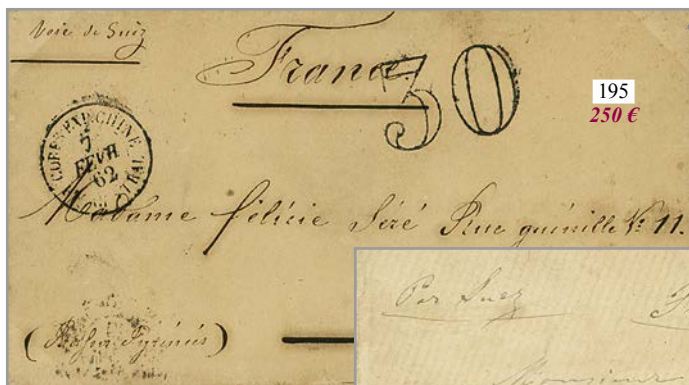 Voie de Suez
France
30
195
250 €
CORPS EXP. CHINE
7
FEVR
62
Madame Félicie Séré Rue guinille N° 11.
Par Suez
(Basses Pyrénées)
Monsieur